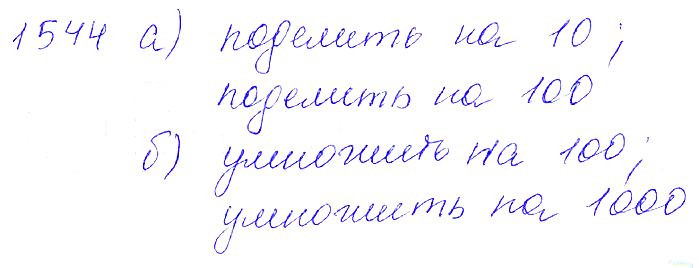 1544 а) поделить на 10;
поделить на 100
б) умножить на 100;
умножить на 1000